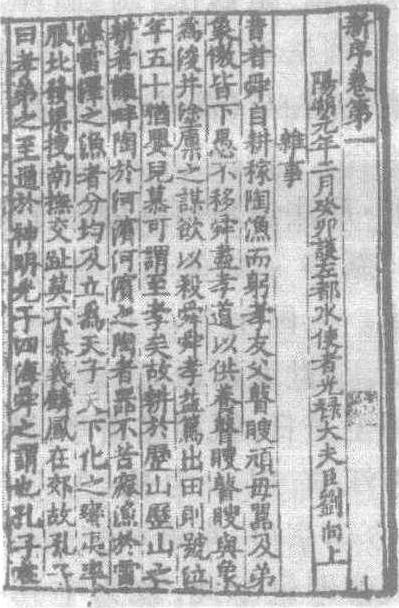 新序卷第一
陽朔元年二月癸卯護左都水使者光祿大夫臣劉向上
雜事
昔者舜自耕稼陶漁而躬孝友父瞽瞍頑母嚚及弟
象傲皆下愚不移舜盡孝道以供養瞽瞍瞽瞍與象
為浚井塗廩之謀欲以殺舜舜孝益篤出田則號泣
年五十猶嬰兒慕可謂至孝矣故耕於歷山歷山之
耕者讓畔陶於河濱河濱之陶者器不苦窳漁於雷
澤雷澤之漁者分均及立爲天子天下化之蠻夷率
服北發渠搜南撫交阯莫不慕義麟鳳在郊故孔子
曰孝弟之至通於神明光于四海舜之謂也孔子在